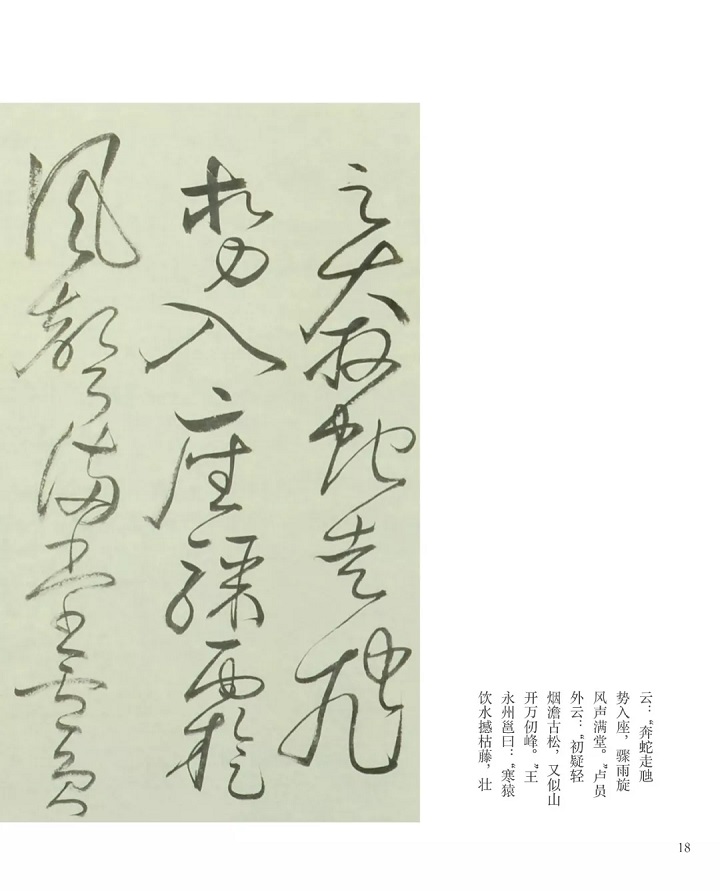 云奔蛇走虺
勢入座驟雨旋
風聲滿堂盧員
云：“奔蛇走虺
势入座，骤雨旋
风声满堂。”卢员
外云：“初疑轻
烟澹古松，又似山
开万仞峰。”王
永州邕曰：“寒猿
饮水撼枯藤，壮
18